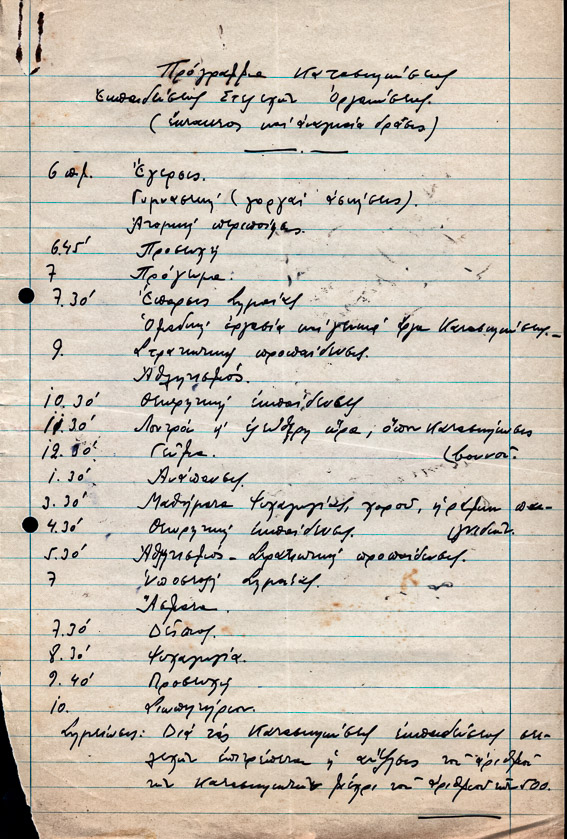 Πρόγραμμα Κατασκηνώσεως
Ἐκπαιδεύσεως Στελεχῶν Ὀργανώσεως.
(ἔκτακτος καὶ ἀναγκαία δρᾶσις)
6 π.μ. Ἔγερσις.
Γυμναστική (γοργαὶ ἀσκήσεις).
Ἀτομική περιποίησις.
6.45' Προσευχή
7 Πρόγευμα.
7.30' Ἔπαρσις Σημαίας
Ὁμαδική ἐργασία καὶ γενικά ἔργα Κατασκηνώσεως.
9. Στρατιωτική προπαίδευσις.
Ἀθλητισμός.
10.30' Θεωρητική ἐκπαίδευσις
11.30' Λουτρὸν ἤ ἐλευθέρα ὥρα, ὅπου Κατασκήνωσις
12.30' Γεῦμα. (βουνοῦ.
1.30' Ἀνάπαυσις.
3.30' Μαθήματα Ψυχαγωγίας, χοροῦ, παι-
4.30' Θεωρητική ἐκπαίδευσις. γνιδιῶν.
5.30' Ἀθλητισμός - Στρατιωτική προπαίδευσις.
7 Ὑποστολή Σημαίας.
Ἄσματα.
7.30' Δεῖπνος.
8.30' Ψυχαγωγία.
9.40' Προσευχή
10. Σιωπητήριον.
Σημείωσις: Διά τάς Κατασκηνώσεις ἐκπαιδεύσεως στε-
λεχῶν ἐπιτρέπεται ἡ αὔξησις τοῦ ἀριθμοῦ
τῶν Κατασκηνωτῶν μέχρι τοῦ ἀριθμοῦ τῶν 500.